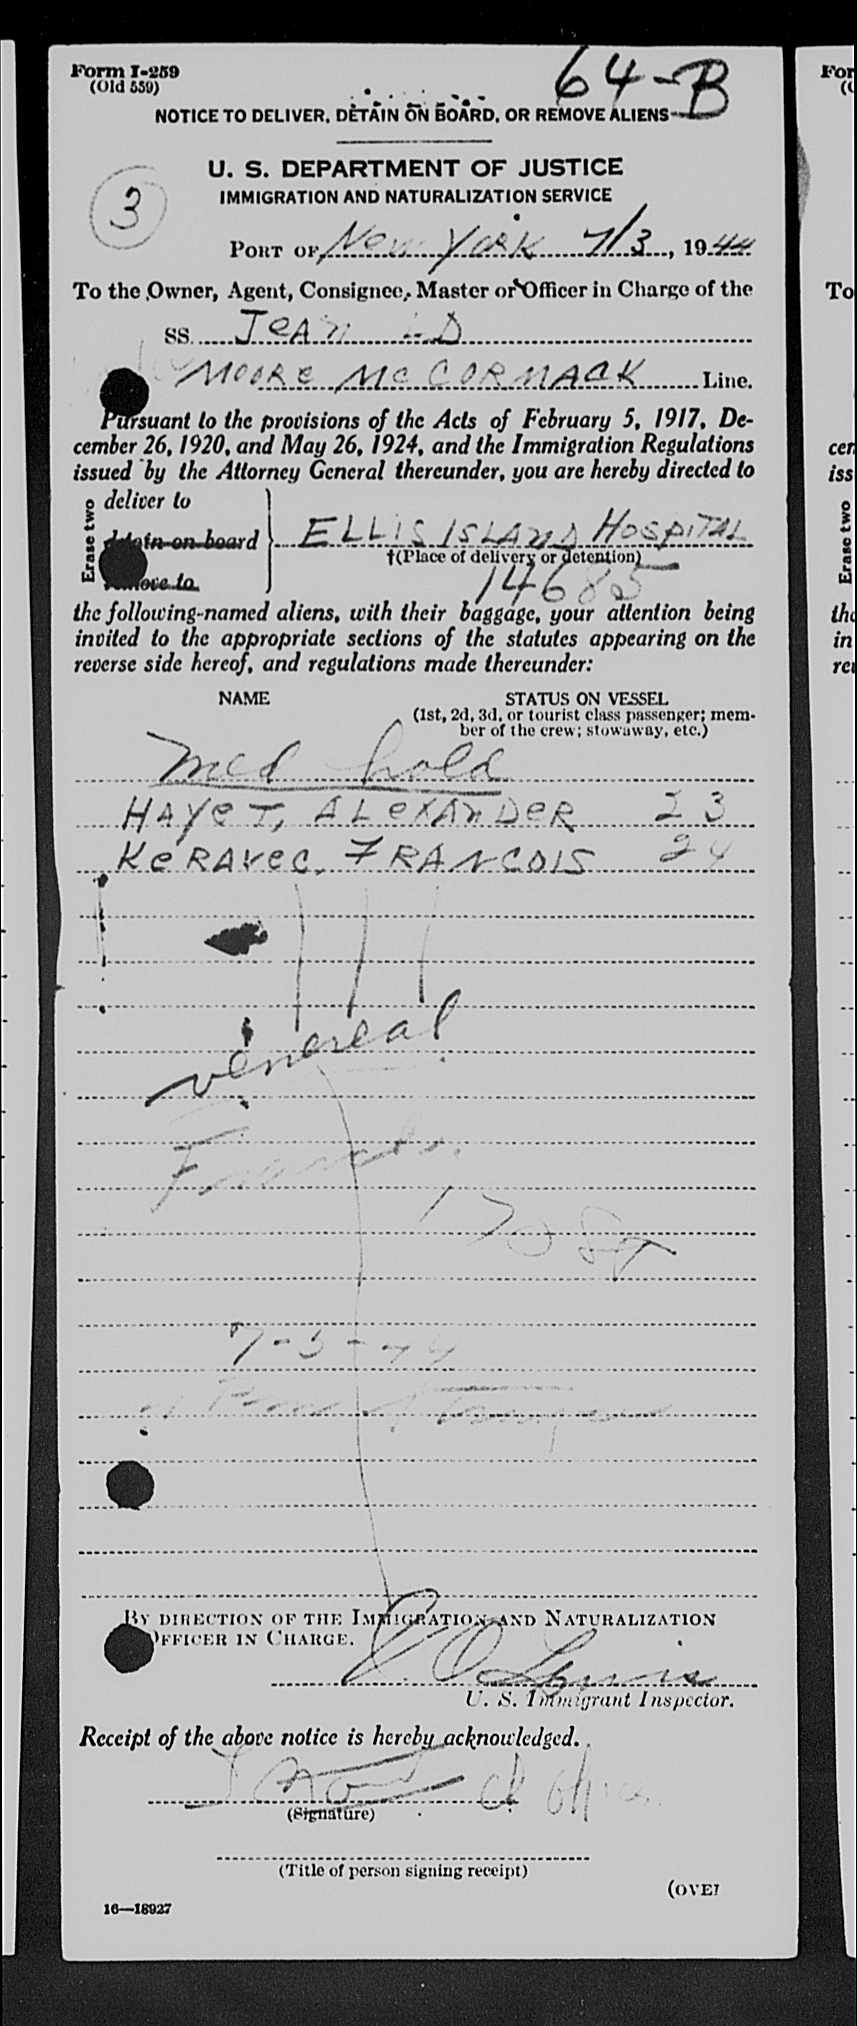 Form I-259
(Old 559)
64-B
NOTICE TO DELIVER, DETAIN ON BOARD, OR REMOVE ALIENS
U. S. DEPARTMENT OF JUSTICE
IMMIGRATION AND NATURALIZATION SERVICE
3
PORT OF New York 7/3, 1944
To the Owner, Agent, Consignee, Master or Officer in Charge of the
SS. Jean LD
Moore McCormack Line.
Pursuant to the provisions of the Acts of February 5, 1917, De-
cember 26, 1920, and May 26, 1924, and the Immigration Regulations
issued by the Attorney General thereunder, you are hereby directed to
Erase two
deliver to
detain on board
remove to
Ellis Island Hospital
†(Place of delivery or detention)
14685
the following-named aliens, with their baggage, your attention being
invited to the appropriate sections of the statutes appearing on the
reverse side hereof, and regulations made thereunder:
NAME STATUS ON VESSEL
(1st, 2d, 3d, or tourist class passenger; mem-
ber of the crew; stowaway, etc.)
med hold
HAYET, ALEXANDER 23
KERAVEC, FRANCOIS 24
venereal
French
7-5-44
BY DIRECTION OF THE IMMIGRATION AND NATURALIZATION
OFFICER IN CHARGE.
Lewis
U. S. Immigrant Inspector.
Receipt of the above notice is hereby acknowledged.
(Signature)
(Title of person signing receipt)
(OVER
16—18927